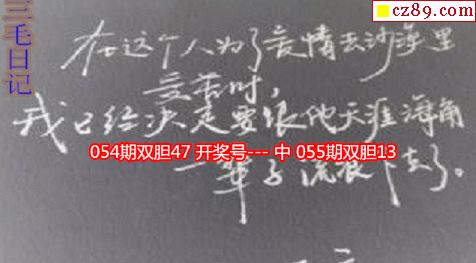 三毛日记
cz89.com
在这个人为了爱情去沙漠里
受苦时,
我已经决定要跟他天涯海角
054期双胆47 开奖号--- 中 055期双胆13
一辈子流浪下去了。